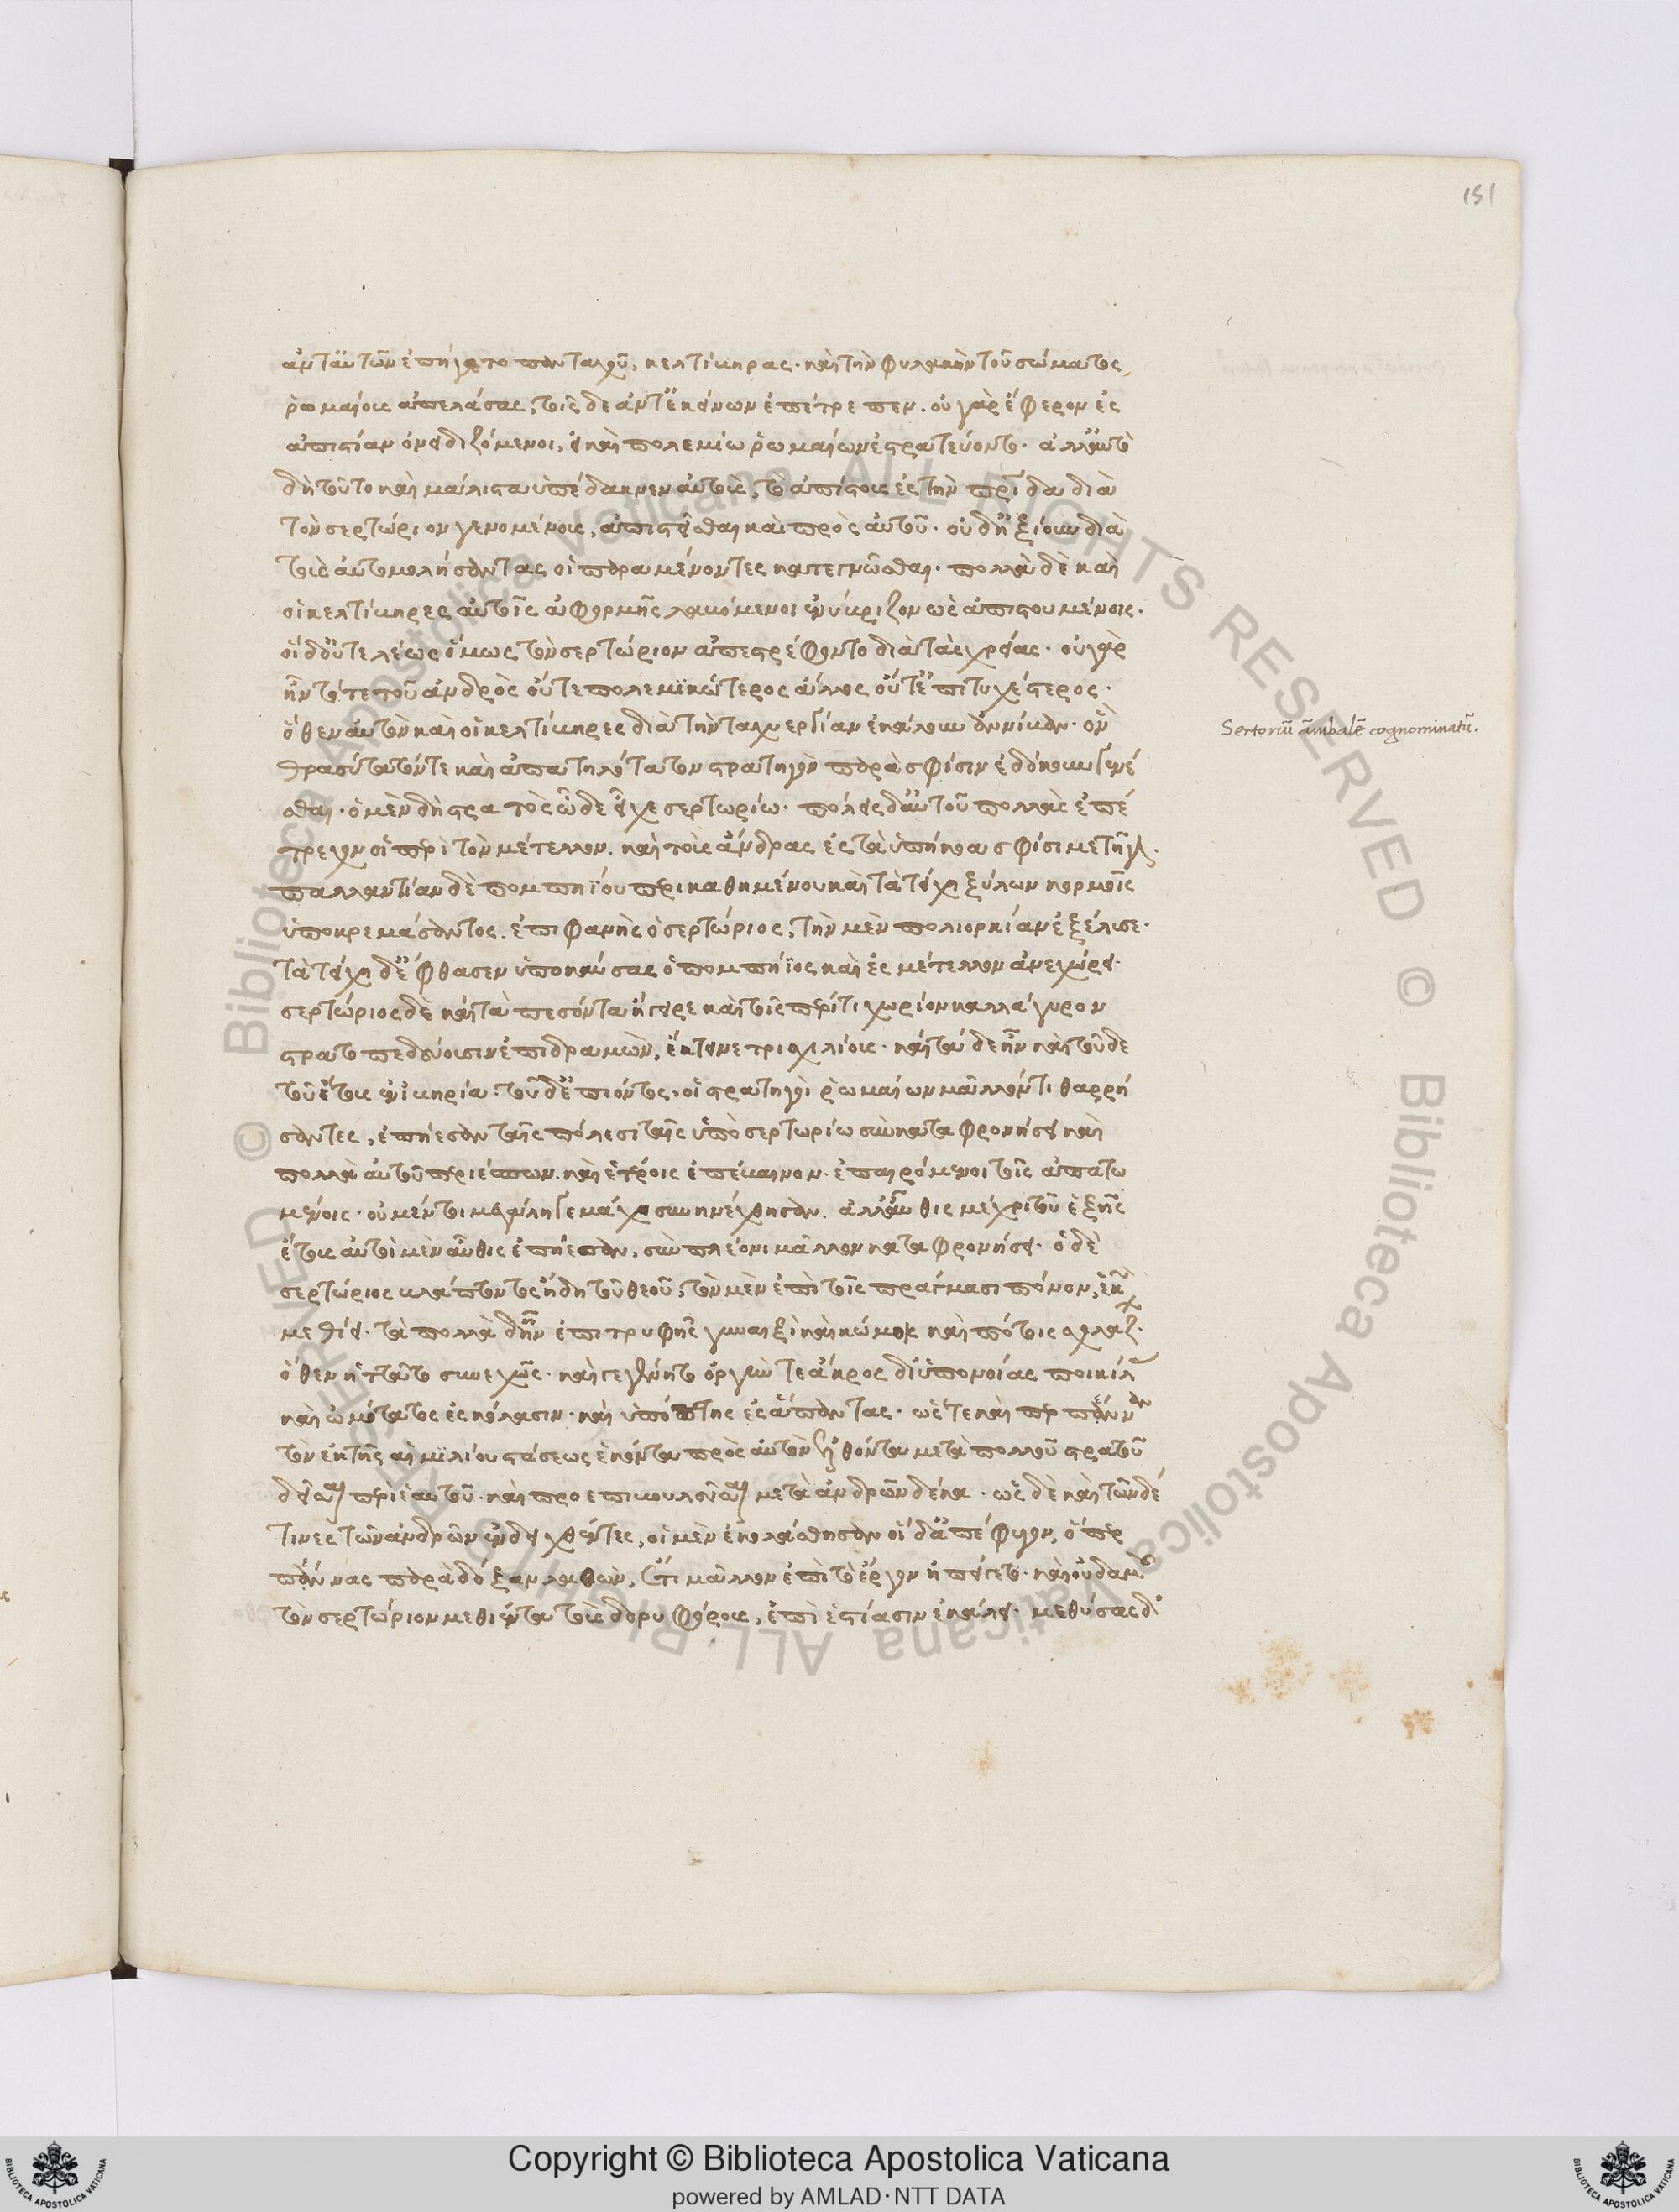 151
ἀντ' αὐτῶν ἐπήγετο πανταχοῦ, κελτίβηρας. καὶ τὴν φυλακὴν τοῦ σώματος
ῥωμαίους ἀπελάσας, τοῖς δε ἀντ' ἐκείνων ἐπέτρεπεν. οὐ γὰρ ἔφερον ἐς
ἀπιστίαν ὀνειδιζόμενοι, εἰ καὶ πολεμίω ῥωμαίων ἐστρατεύοντο. ἀλλ' αὐτὸ
δὴ τοῦτο καὶ μάλιστα ὑπέδακνεν αὐτοὺς, τὸ ἀπίστους ἐς τὴν πατρίδα διὰ
τὸν σερτώριον γενομένους, ἀπιστεῖσθαι καὶ πρὸς αὐτοῦ. οὐδ' ἠξίουν διὰ
τοὺς αὐτομολήσαντας οἱ παραμένοντες κατεγνῶσθαι. πολλὰ δὲ καὶ
οἱ κελτίβηρες αὐτοῖς ἀφορμῆς λαβόμενοι ἐνύβριζον ὡς ἀπιστουμένοις.
οἱ δ' οὐ τελέως ὅμως τὸν σερτώριον ἀπεστρέφοντο διὰ τὰς χρείας. οὐ γὰρ
ἦν τότε τοῦ ἀνδρὸς οὔτε πολεμϊκώτερος ἄλλος οὔτ' ἐπιτυχέστερος.
ὅθεν αὐτὸν καὶ οἱ κελτίβηρες διὰ τὴν ταχυεργίαν ἐκάλουν ἀννίβαν. ὃν
θρασύτατόν τε καὶ ἀπατηλότατον στρατηγὸν παρὰ σφίσιν ἐδόκουν γενέ
σθαι. ὁ μὲν δὴ στρατὸς ὧδε εἶχε σερτωρίω. πόλεις δ' αὐτοῦ πολλὰς ἐπέ
τρεχον οἱ περὶ τὸν μέτελλον. καὶ τοὺς ἄνδρας ἐς τὰ ὑπήκοα σφίσι μετῆγον.
παλλαντίαν δὲ πομπηΐου περικαθημένου καὶ τὰ τείχη ξύλων κορμοῖς
ὑποκρεμάσαντος. ἐπιφανὴς ὁ σερτώριος, τὴν μὲν πολιορκίαν ἐξέλυσε.
τὰ τείχη δ' ἔφθασεν ὑποκαύσας ὁ πομπήϊος καὶ ἐς μέτελλον ἀνεχώρει.
σερτώριος δὲ καὶ τὰ πεσόντα ἤγειρε καὶ τοῖς περί τι χωρίον καλλάγυρον
στρατοπεδεύουσιν ἐπιδραμὼν, ἔκτεινε τρισχιλίους. καὶ τάδε ἦν καὶ τοῦδε
τοῦ ἔτους ἐν ἰβηρία. τοῦ δ' ἐπιόντος, οἱ στρατηγοὶ ῥωμαίων μᾶλλόν τι θαρρή
σαντες, ἐπήεσαν ταῖς πόλεσι ταῖς ὑπὸ σερτωρίω σὺν καταφρονήσει καὶ
πολλὰ αὐτοῦ περιέσπων. καὶ ἑτέροις ἐπέβαινον. ἐπαιρόμενοι τοῖς ἀπαντω
μένοις. οὐ μέντοι μεγάλη γε μάχη συνηνέχθησαν. ἀλλ' αὖθις μέχρι τοῦ ἑξῆς
ἔτους αὐτοὶ μὲν αὖθις ἐπήεσαν, σὺν πλέονι μᾶλλον καταφρονήσει. ὁ δὲ
σερτώριος βλάπτοντος ἤδη τοῦ θεοῦ, τὸν μὲν ἐπὶ τοῖς πράγμασι πόνον, ἑκὼν
μεθίει. τὰ πολλὰ δ' ἦν ἐπὶ τρυφῆς γυναιξὶ καὶ κώμοις καὶ πότοις σχολάζων.
ὅθεν ἡττᾶτο συνεχῶς. καὶ γεγένητο ὀργὴν τε ἄκρος δι' ὑπονοίας ποικίλας
καὶ ὠμότατος ἐς κόλασιν. καὶ ὑπόπτης ἐς ἅπαντας. ὥστε καὶ περπένναν
τὸν ἐκ τῆς αἰμιλίου στάσεως ἑκόντα πρὸς αὐτὸν ἐλθόντα μετὰ πολλοῦ στρατοῦ
δεῖσαι περὶ ἑαυτοῦ. καὶ προεπιβουλεῦσαι μετὰ ἀνδρῶν δέκα. ὡς δὲ καὶ τῶνδέ
τινες τῶν ἀνδρῶν ἐνδειχθέντες, οἱ μὲν ἐκολάσθησαν οἱ δ' ἀπέφυγον, ὁ περ
πέννας παρὰ δόξαν λαθὼν, ἔτι μᾶλλον ἐπὶ τὸ ἔργον ἠπείγετο. καὶ οὐδαμοῦ
τὸν σερτώριον μεθιέντα τοὺς δορυφόρους, ἐπὶ ἑστίασιν ἐκάλει. μεθύσας δ'
Sertoriũ ãnibalẽ cognominatũ.
Copyright © Biblioteca Apostolica Vaticana
powered by AMLAD·NTT DATA